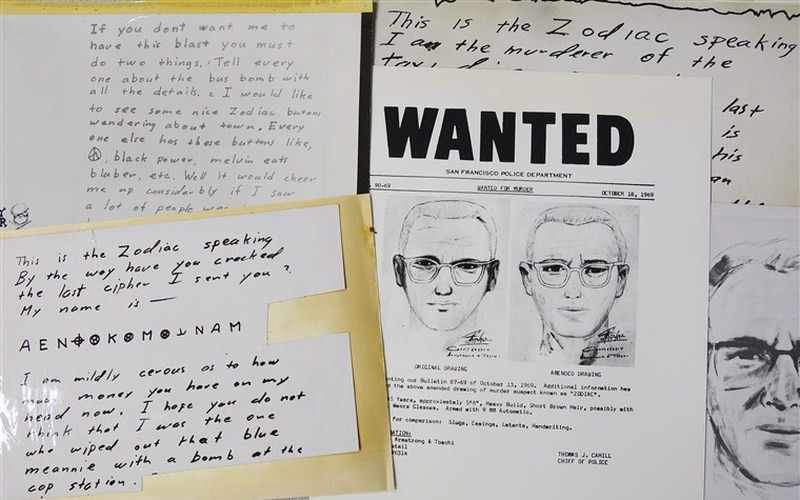 If you dont want me to
have this blast you must
do two things. Tell every
one about the bus bomb with
all the details. I would like
to see some nice Zodiac butons
wandering about town. Every
one else has these buttons like,
☮, black power, melvin eats
bluber, etc. Well it would cheer
me up considerbly if I saw
a lot of people
This is the Zodiac speaking
By the way have you cracked
the last cipher I sent you?
My name is —
A E N ⊕ ⊗ K ⊗ M ⊗ ⅃ N A M
I am mildly cerous as to how
much money you have on my
head now. I hope you do not
think that I was the one
who wiped out that blue
meannie with a bomb at the
cop station.
This is the Zodiac speaking
I am the murderer of the
last
is
his
WANTED
SAN FRANCISCO POLICE DEPARTMENT
90-69 WANTED FOR MURDER OCTOBER 18, 1969
ORIGINAL DRAWING AMENDED DRAWING
our Bulletin 87-69 of October 13, 1969. Additional information has
the above amended drawing of murder suspect known as "ZODIAC".
Years, approximately 5'8", Heavy Build, Short Brown Hair, possibly with
Wears Glasses. Armed with 9 MM Automatic.
for comparison: Slugs, Casings, Latents, Handwriting.
Armstrong & Toschi
THOMAS J. CAHILL
CHIEF OF POLICE